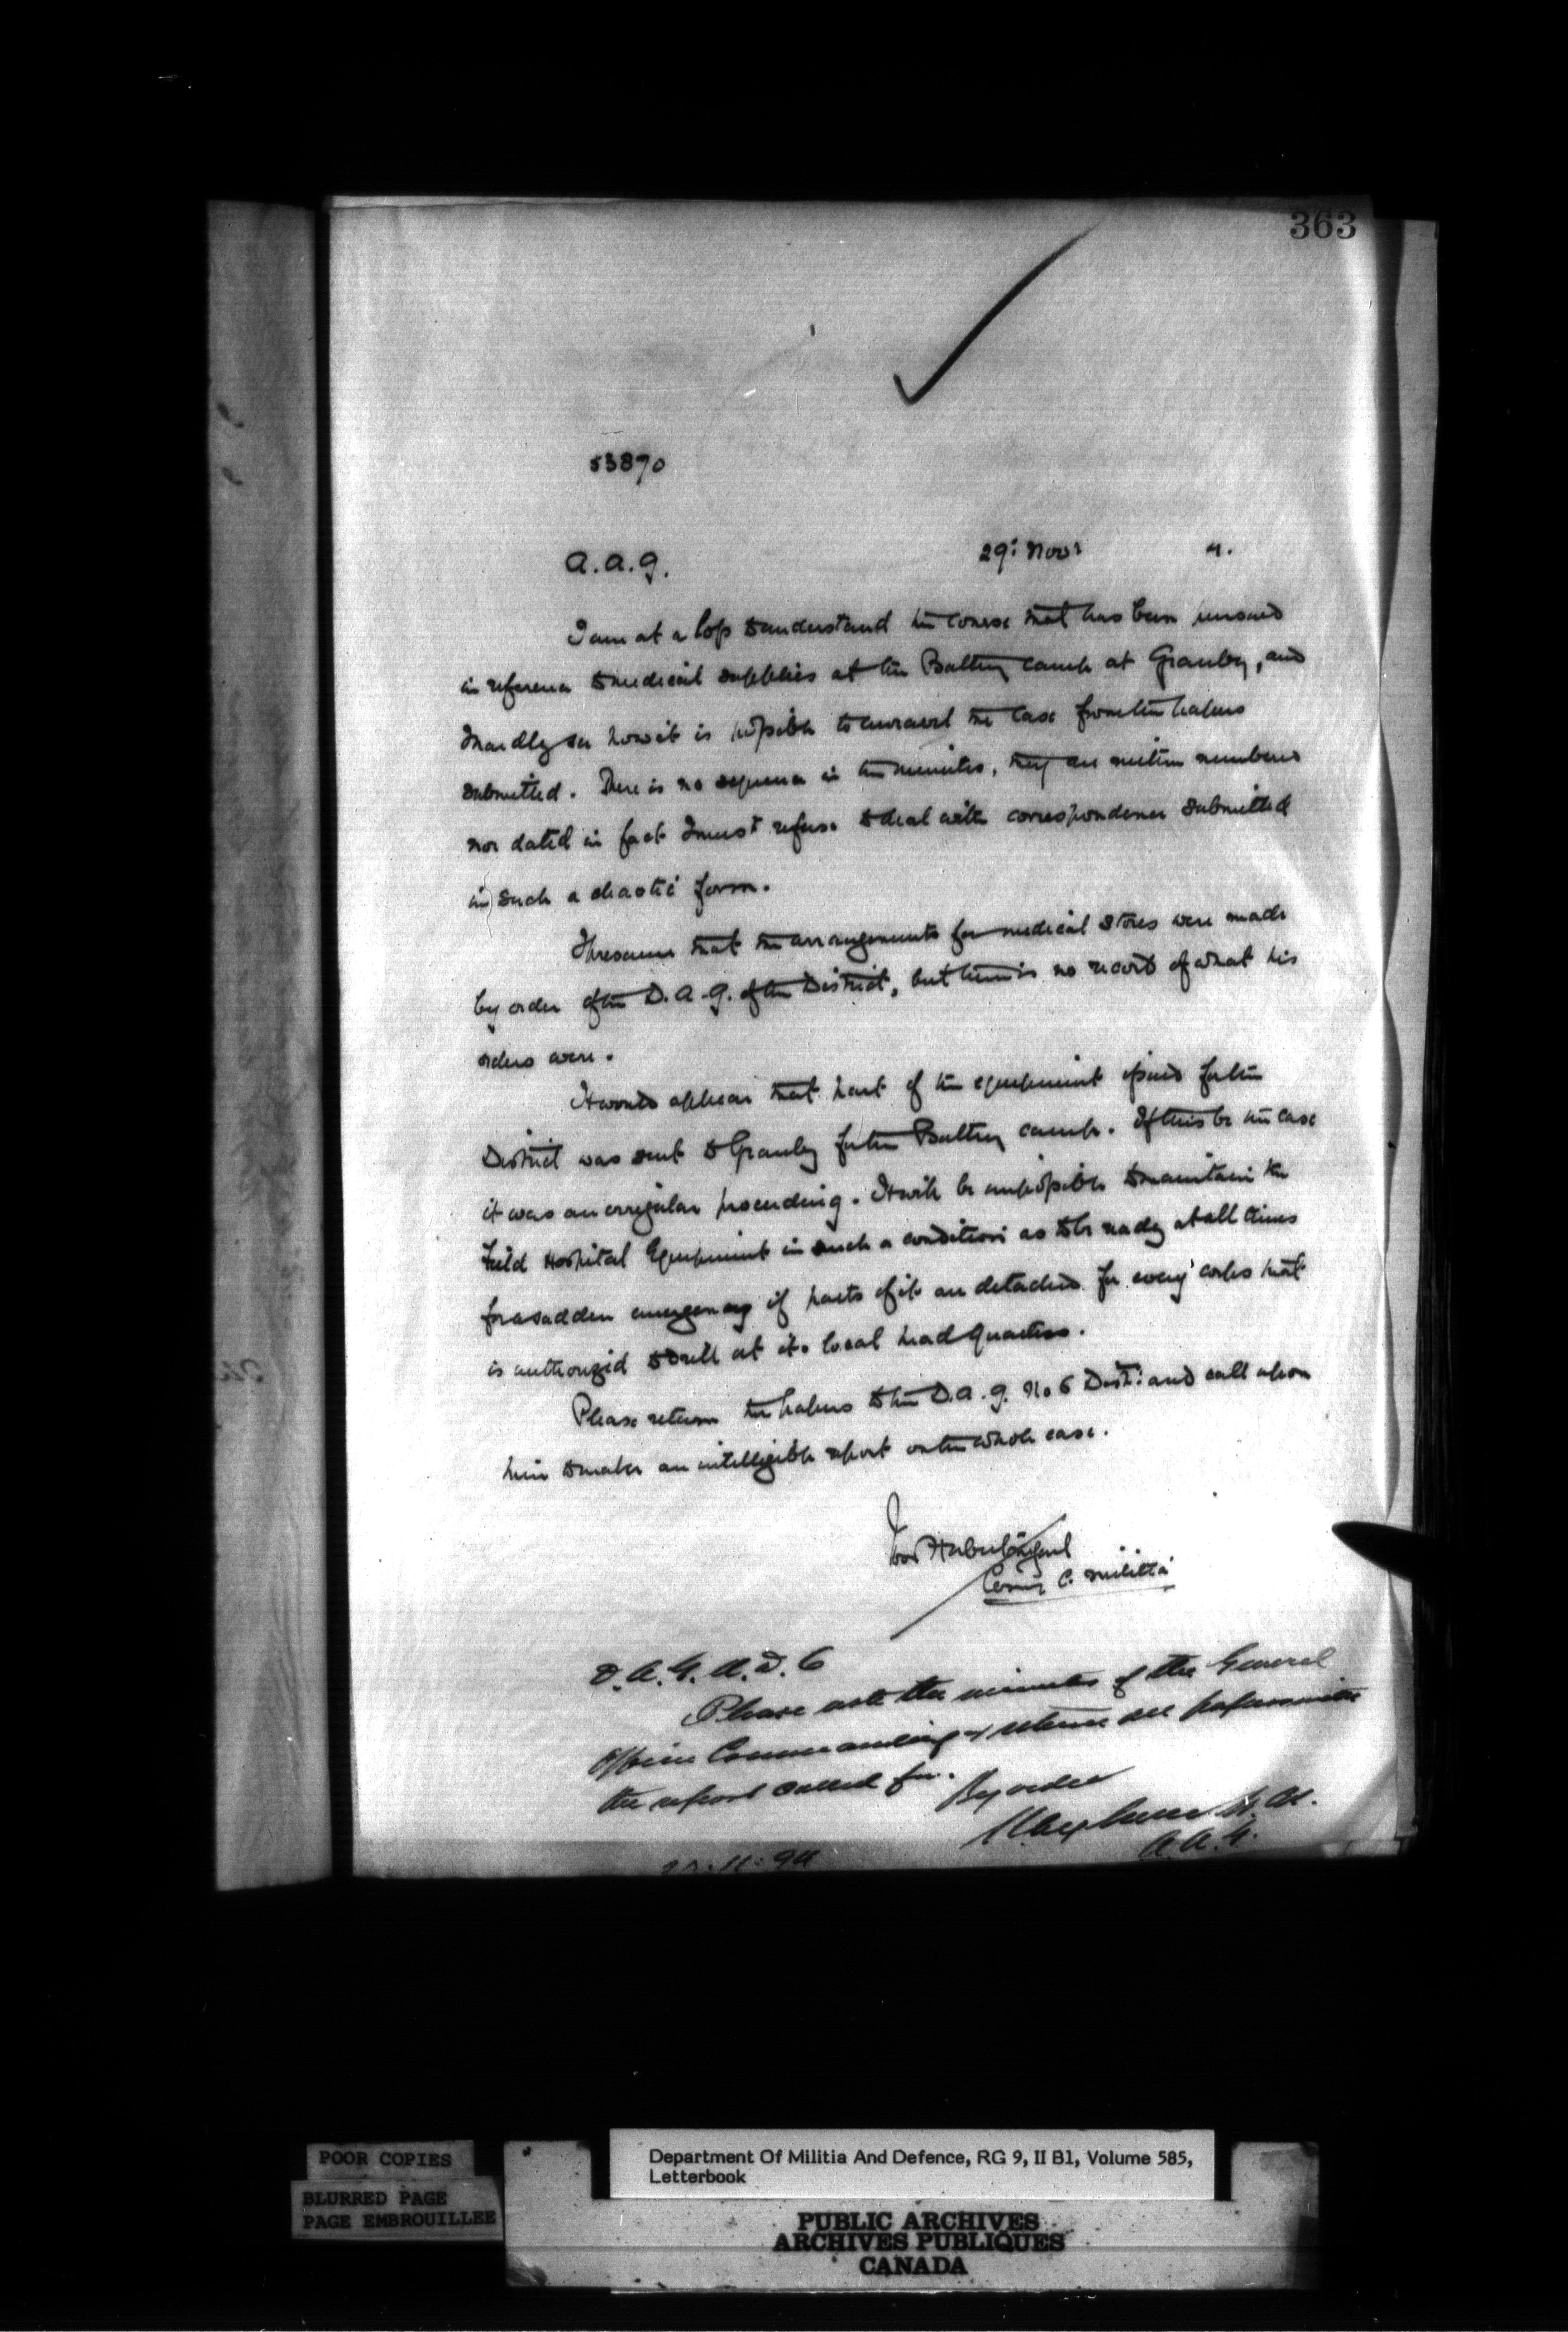 363
53890
A.A.G. 29th Novr 4.
I am at a loss to understand the course that has been pursued
in reference to medical supplies at the Battery camp at Granby, and
I hardly see how it is possible to unravel the case from the papers
submitted. There is no sequence in the minutes, they are neither numbered
nor dated in fact I must refuse to deal with correspondence submitted
in such a chaotic form.
I presume that the arrangements for medical stores were made
by order of the D.A.G. of the District, but there is no record of what his
orders were.
It would appear that part of the equipment issued for the
District was sent to Granby for the Battery camp. If this be the case
it was an irregular proceeding. It will be impossible to maintain the
Field Hospital Equipment in such a condition as to be ready at all times
for a sudden emergency if parts of it are detached for every corps that
is authorized to drill at its local head quarters.
Please return the papers to the D.A.G. No 6 Distt: and call upon
him to make an intelligible report on the whole case.
Ivor Herbert
Comg C. Militia
D.A.G. M.D. 6
Please note the minutes of the General
Officer Commanding & return all papers with
the report called for.
By order
A.A.G.
11.94
POOR COPIES
BLURRED PAGE
PAGE EMBROUILLEE
Department Of Militia And Defence, RG 9, II B1, Volume 585,
Letterbook
PUBLIC ARCHIVES
ARCHIVES PUBLIQUES
CANADA